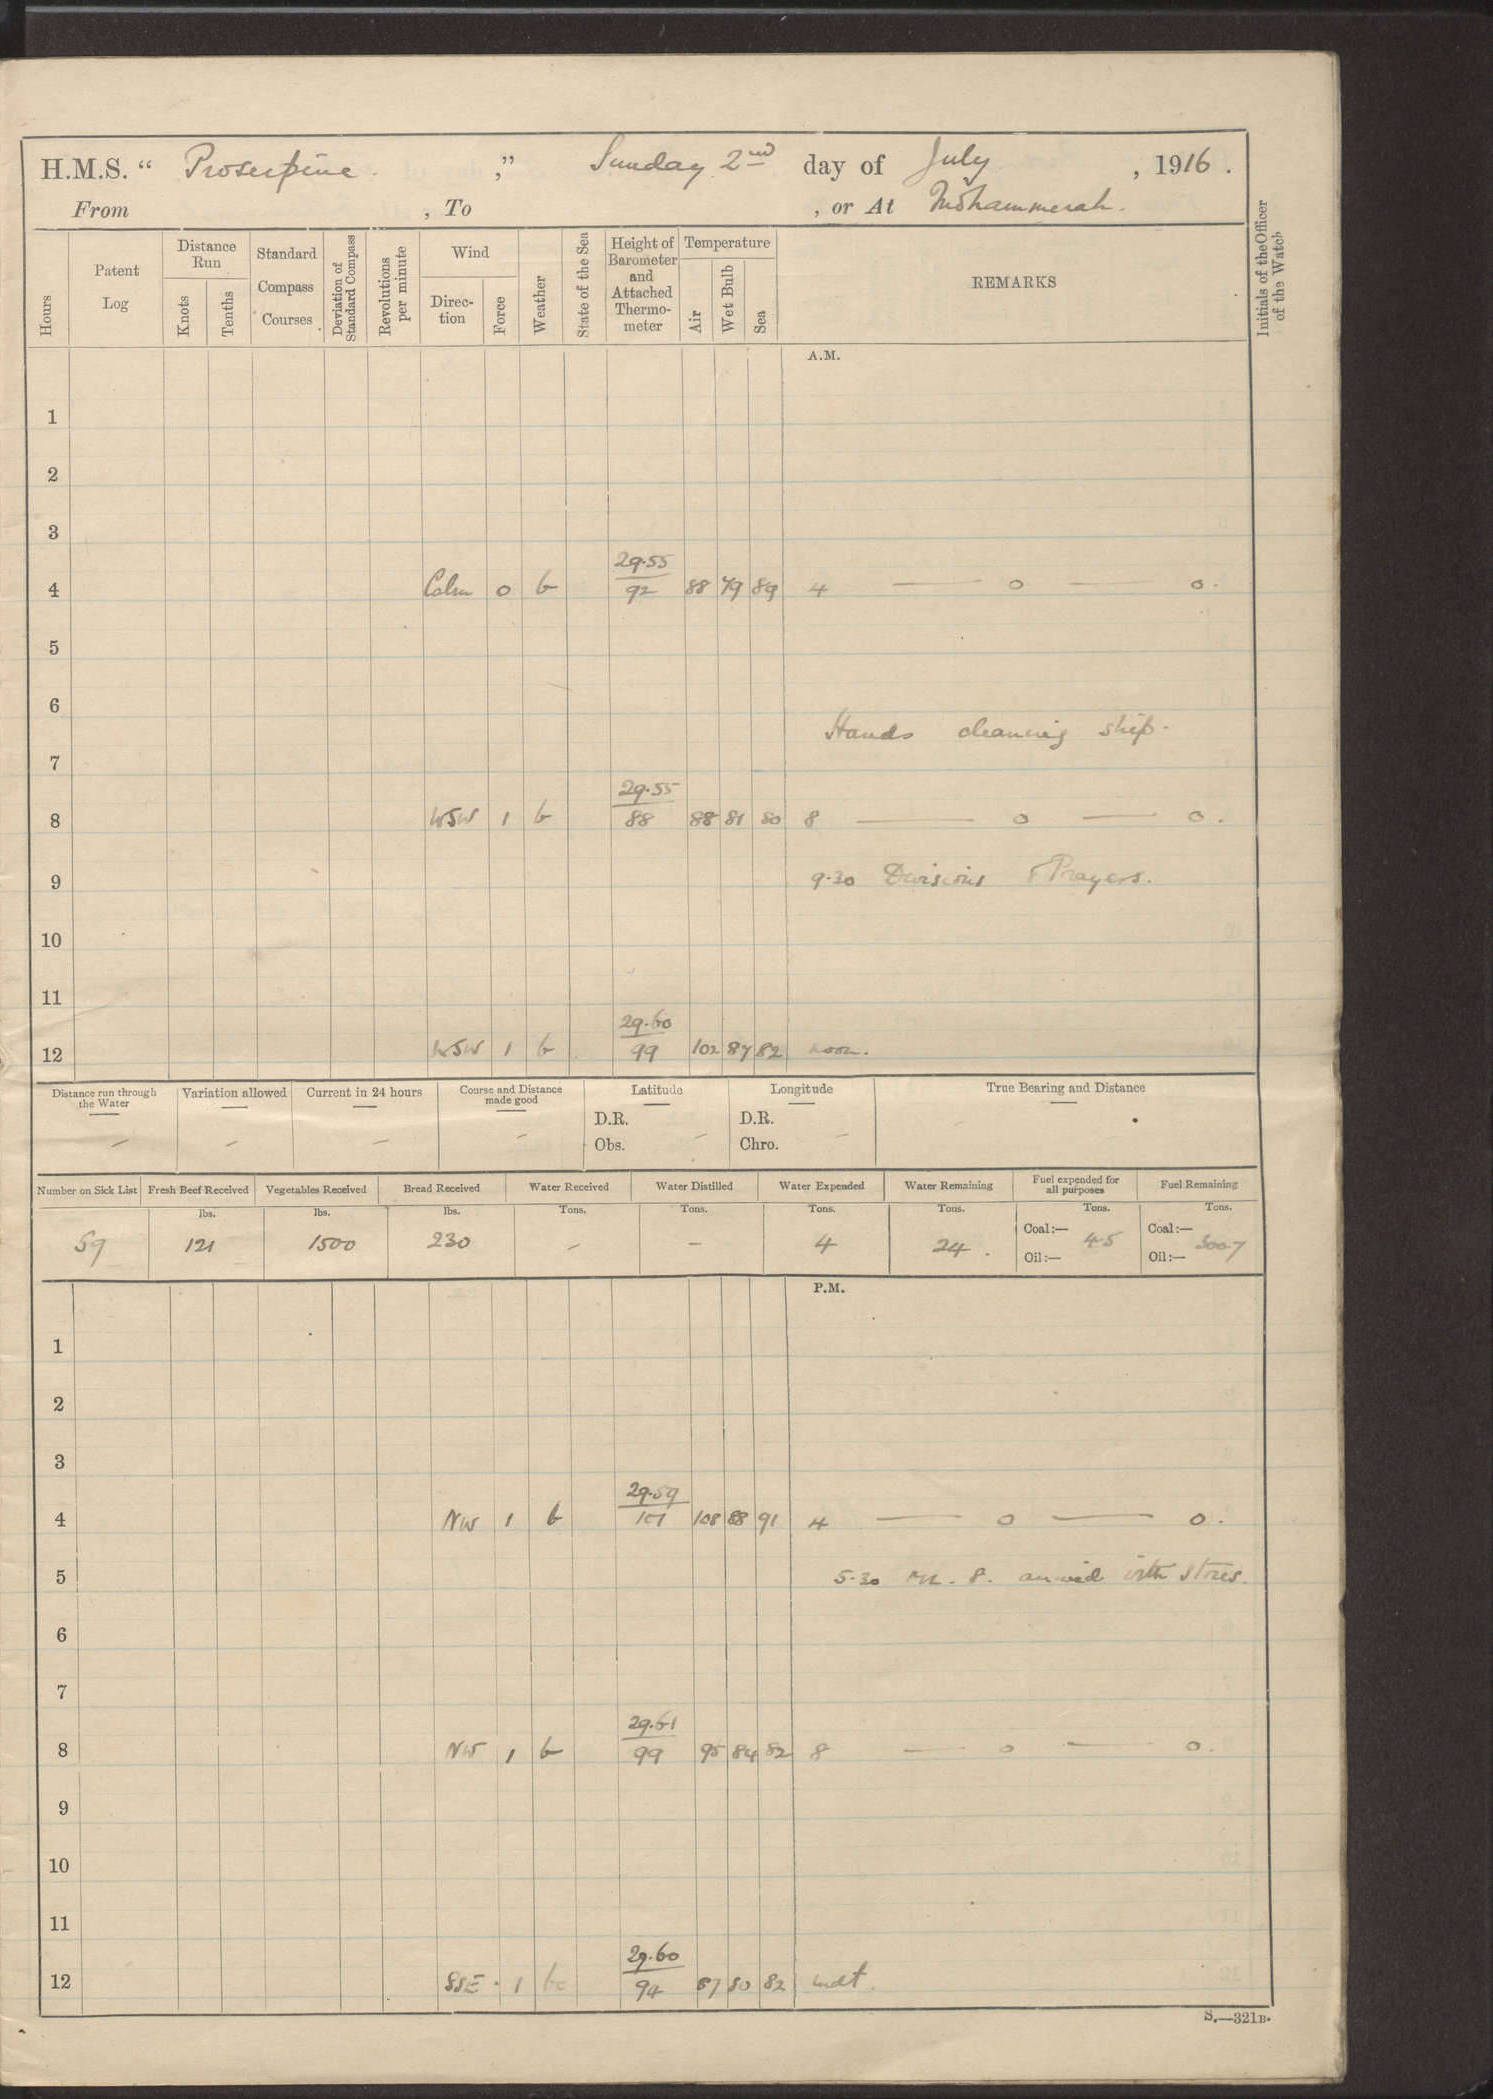 H.M.S. “ Proserpine ,” Sunday 2nd day of July , 1916 .
From , To , or At Mohammerah.
Hours
Patent Log
Distance Run
Knots
Tenths
Standard Compass Courses
Deviation of Standard Compass
Revolutions per minute
Wind
Direc-tion
Force
Weather
State of the Sea
Height of Barometer and Attached Thermo-meter
Temperature
Air
Wet Bulb
Sea
REMARKS
Initials of the Officer of the Watch
A.M.
1
2
3
29.55
4 Calm 0 b 92 88 79 89 4 — o — o.
5
6
Hands cleaning ship.
7
29.55
8 WSW 1 b 88 88 81 80 8 — o — o.
9 9.30 Divisions & Prayers.
10
11
29.60
12 WSW 1 b 99 102 87 82 noon.
Distance run through the Water
Variation allowed
Current in 24 hours
Course and Distance made good
Latitude
D.R.
Obs. –
Longitude
D.R.
Chro. –
True Bearing and Distance
– – – –
Number on Sick List Fresh Beef Received Vegetables Received Bread Received Water Received Water Distilled Water Expended Water Remaining Fuel expended for all purposes Fuel Remaining
lbs. lbs. lbs. Tons. Tons. Tons. Tons. Tons. Tons.
59 121 1500 230 – – 4 24 .
Coal:— 4.5
Oil:—
Coal:— 300.7
Oil:—
P.M.
1
2
3
29.59
4 NW 1 b 101 108 88 91 4 — o — o.
5 5.30 ML. 8. arrived with stores.
6
7
29.61
8 NW 1 b 99 95 84 82 8 — o — o.
9
10
11
29.60
12 SSE 1 bc 94 87 80 82 mdt.
S.—321B.